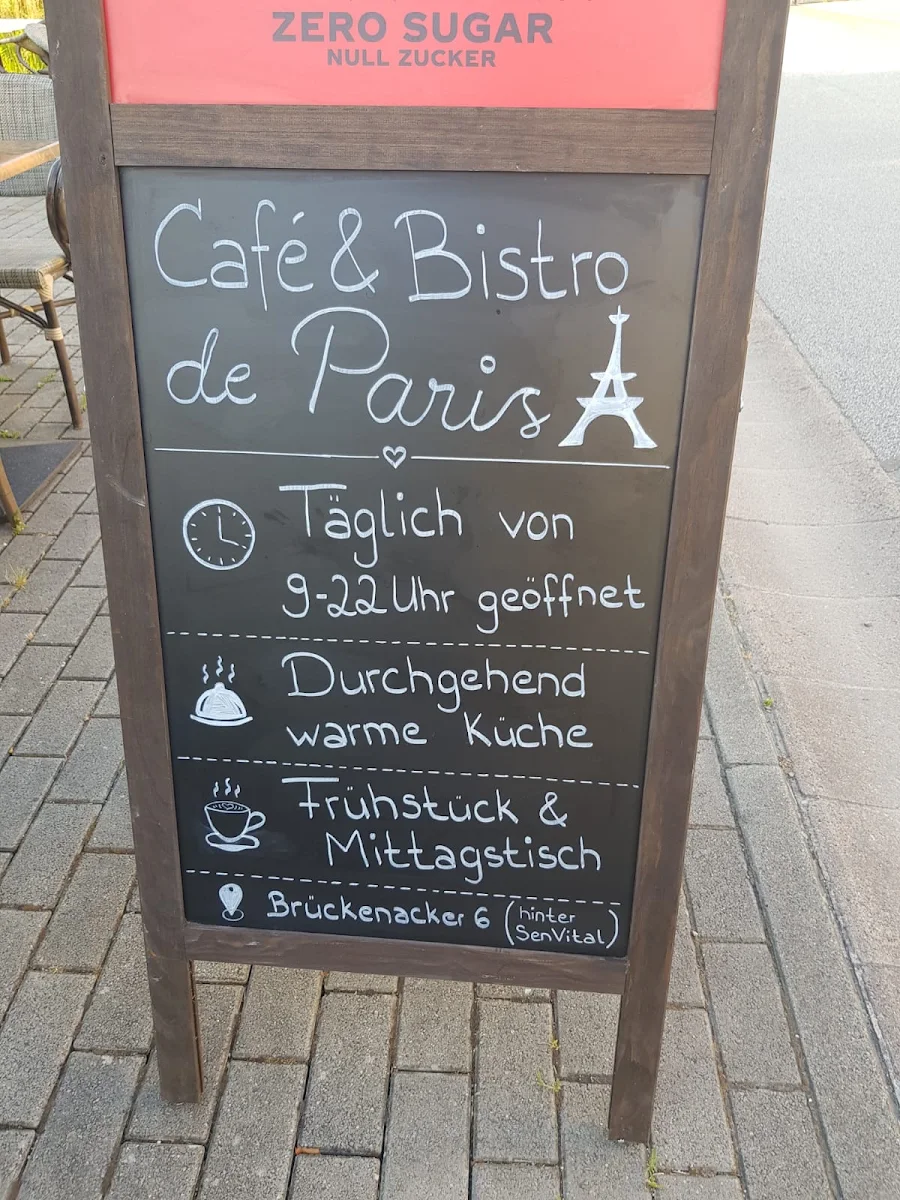 ZERO SUGAR
NULL ZUCKER
Café & Bistro
de Paris
Täglich von
9-22 Uhr geöffnet
Durchgehend
warme Küche
Frühstück &
Mittagstisch
Brückenacker 6 (hinter
SenVital)